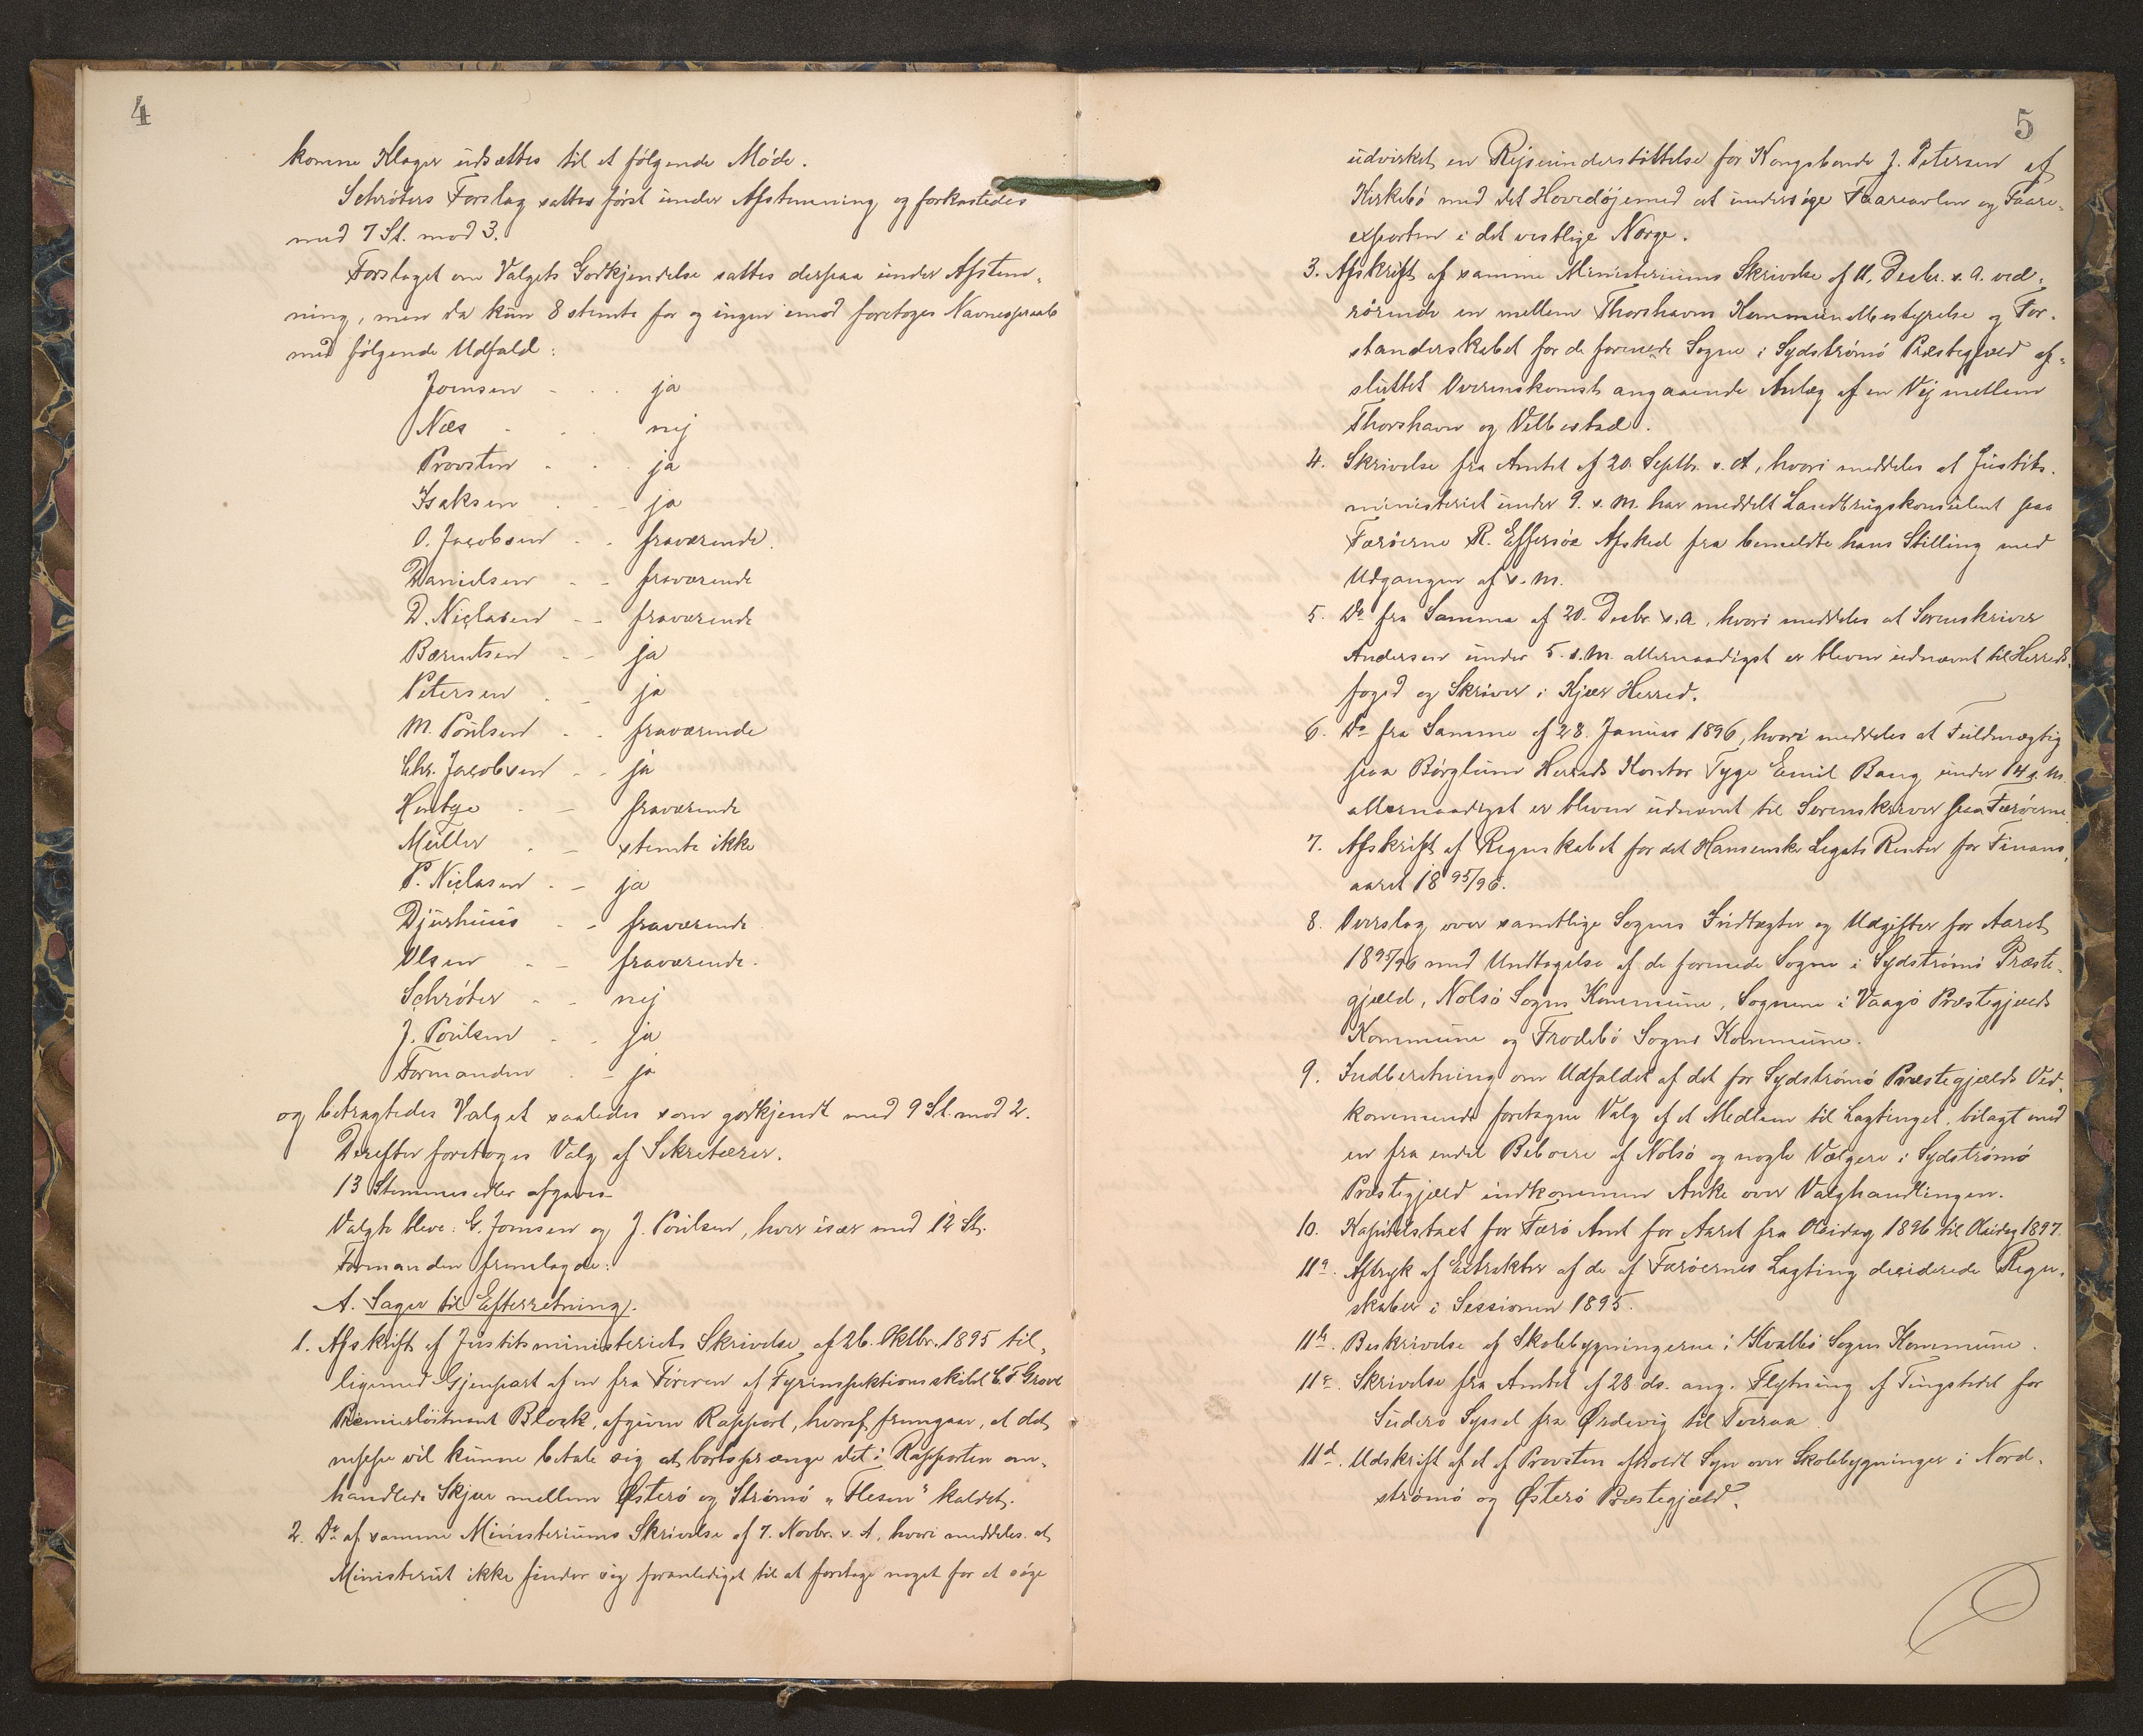 4
komne Klager udsættes til et følgende Møde.
Schrøters Forslag sattes først under Afstemning og forkastedes
med 7 St. mod 3.
Forslaget om Valgets Godkjendelse sattes derpaa under Afstem-
ning, men da kun 8 stemte for og ingen imod foretoges Navneopraab
med følgende Udfald:
Joensen - - - ja
Næs - - - nej
Provsten - - - ja
Isaksen - - - ja
O. Jacobsen - - fraværende.
Danielsen - - fraværende
D. Niclasen - - fraværende
Bærentsen - - ja
Petersen - - ja
M. Poulsen - - fraværende
Chr. Jacobsen - - ja
Hentze - - fraværende
Müller - - stemte ikke
P. Niclasen - - ja
Djurhuus - - fraværende
Olsen - - fraværende.
Schrøter - - nej
J. Poulsen - - ja
Formanden - - ja
og betragtedes Valget saaledes som godkjendt med 9 St. mod 2.
Derefter foretoges Valg af Sekretærer.
13 Stemmesedler afgaves.
Valgte bleve: G. Joensen og J. Poulsen, hver især med 12 St.
Formanden fremlagde:
A. Sager til Efterretning.
1. Afskrift af Justitsministeriets Skrivelse af 26. Oktbr. 1895 til-
ligemed Gjenpart af en fra Føreren af Fyrinspektionsskibet C. F. Grove
Premierløitnant Block, afgiven Rapport, hvoraf fremgaar, at det
neppe vil kunne betale sig at bortsprænge det i Rapporten om-
handlede Skjær mellem Østerø og Strømø "Flesen" kaldet.
2. Do af samme Ministeriums Skrivelse af 7. Novbr. s. A. hvori meddeles at
Ministeriet ikke finder sig foranlediget til at foretage noget for at søge
5
udvirket en Rejseunderstøttelse for Kongsbonde J. Petersen af
Kirkebø med det Hovedøjemed at undersøge Faareavlen og Faare-
exporten i det vestlige Norge.
3. Afskrift af samme Ministeriums Skrivelse af 11. Decbr. s. A. ved-
rørende en mellem Thorshavns Kommunalbestyrelse og For-
standerskabet for de forenede Sogne i Sydstrømø Præstegjæld af-
sluttet Overenskomst angaaende Anlæg af en Vej mellem
Thorshavn og Velbestad.
4. Skrivelse fra Amtet af 20. Septbr. s. A., hvori meddeles at Justits-
ministeriet under 9. s. M. har meddelt Landbrugskonsulent paa
Færøerne R. Effersøe Afsked fra bemeldte hans Stilling med
Udgangen af s. M.
5. Do fra Samme af 20. Decbr. s. A., hvori meddeles at Sorenskriver
Andersen under 5. s. M. allernaadigst er bleven udnævnt til Herreds-
foged og Skriver i Kjær Herred.
6. Do fra Samme af 28. Januar 1896, hvori meddeles at Fuldmægtig
paa Børglum Herreds Kontor Tyge Emil Bang under 14 s. M.
allernaadigst er bleven udnævnt til Sorenskriver paa Færøerne.
7. Afskrift af Regnskabet for det Hansenske Legats Renter for Finans-
aaret 1895/96.
8. Overslag over samtlige Sognes Indtægter og Udgifter for Aaret
1895/96 med Undtagelse af de forenede Sogne i Sydstrømø Præste-
gjæld, Nolsø Sogns Kommune, Sognene i Vaagø Præstegjælds
Kommune og Frodebø Sogns Kommune.
9. Indberetning om Udfaldet af det for Sydstrømø Præstegjælds Ved-
kommende foretagne Valg af et Medlem til Lagtinget, bilagt med
en fra endel Beboere af Nolsø og nogle Vælgere i Sydstrømø
Præstegjæld indkommen Anke over Valghandlingen.
10. Kapitelstaxt for Færø Amt for Aaret fra Olaidag 1896 til Olaidag 1897.
11a. Aftryk af Extrakter af de af Færøernes Lagting deciderede Regn-
skaber i Sessionen 1895.
11b. Beskrivelse af Skolebygningerne i Kvalbø Sogns Kommune.
11c. Skrivelse fra Amtet af 28 ds. ang. Flytning af Tingstedet for
Suderø Syssel fra Ørdevig til Tveraa.
11d. Udskrift af et af Provsten afholdt Syn over Skolebygninger i Nord-
strømø og Østerø Præstegjæld.